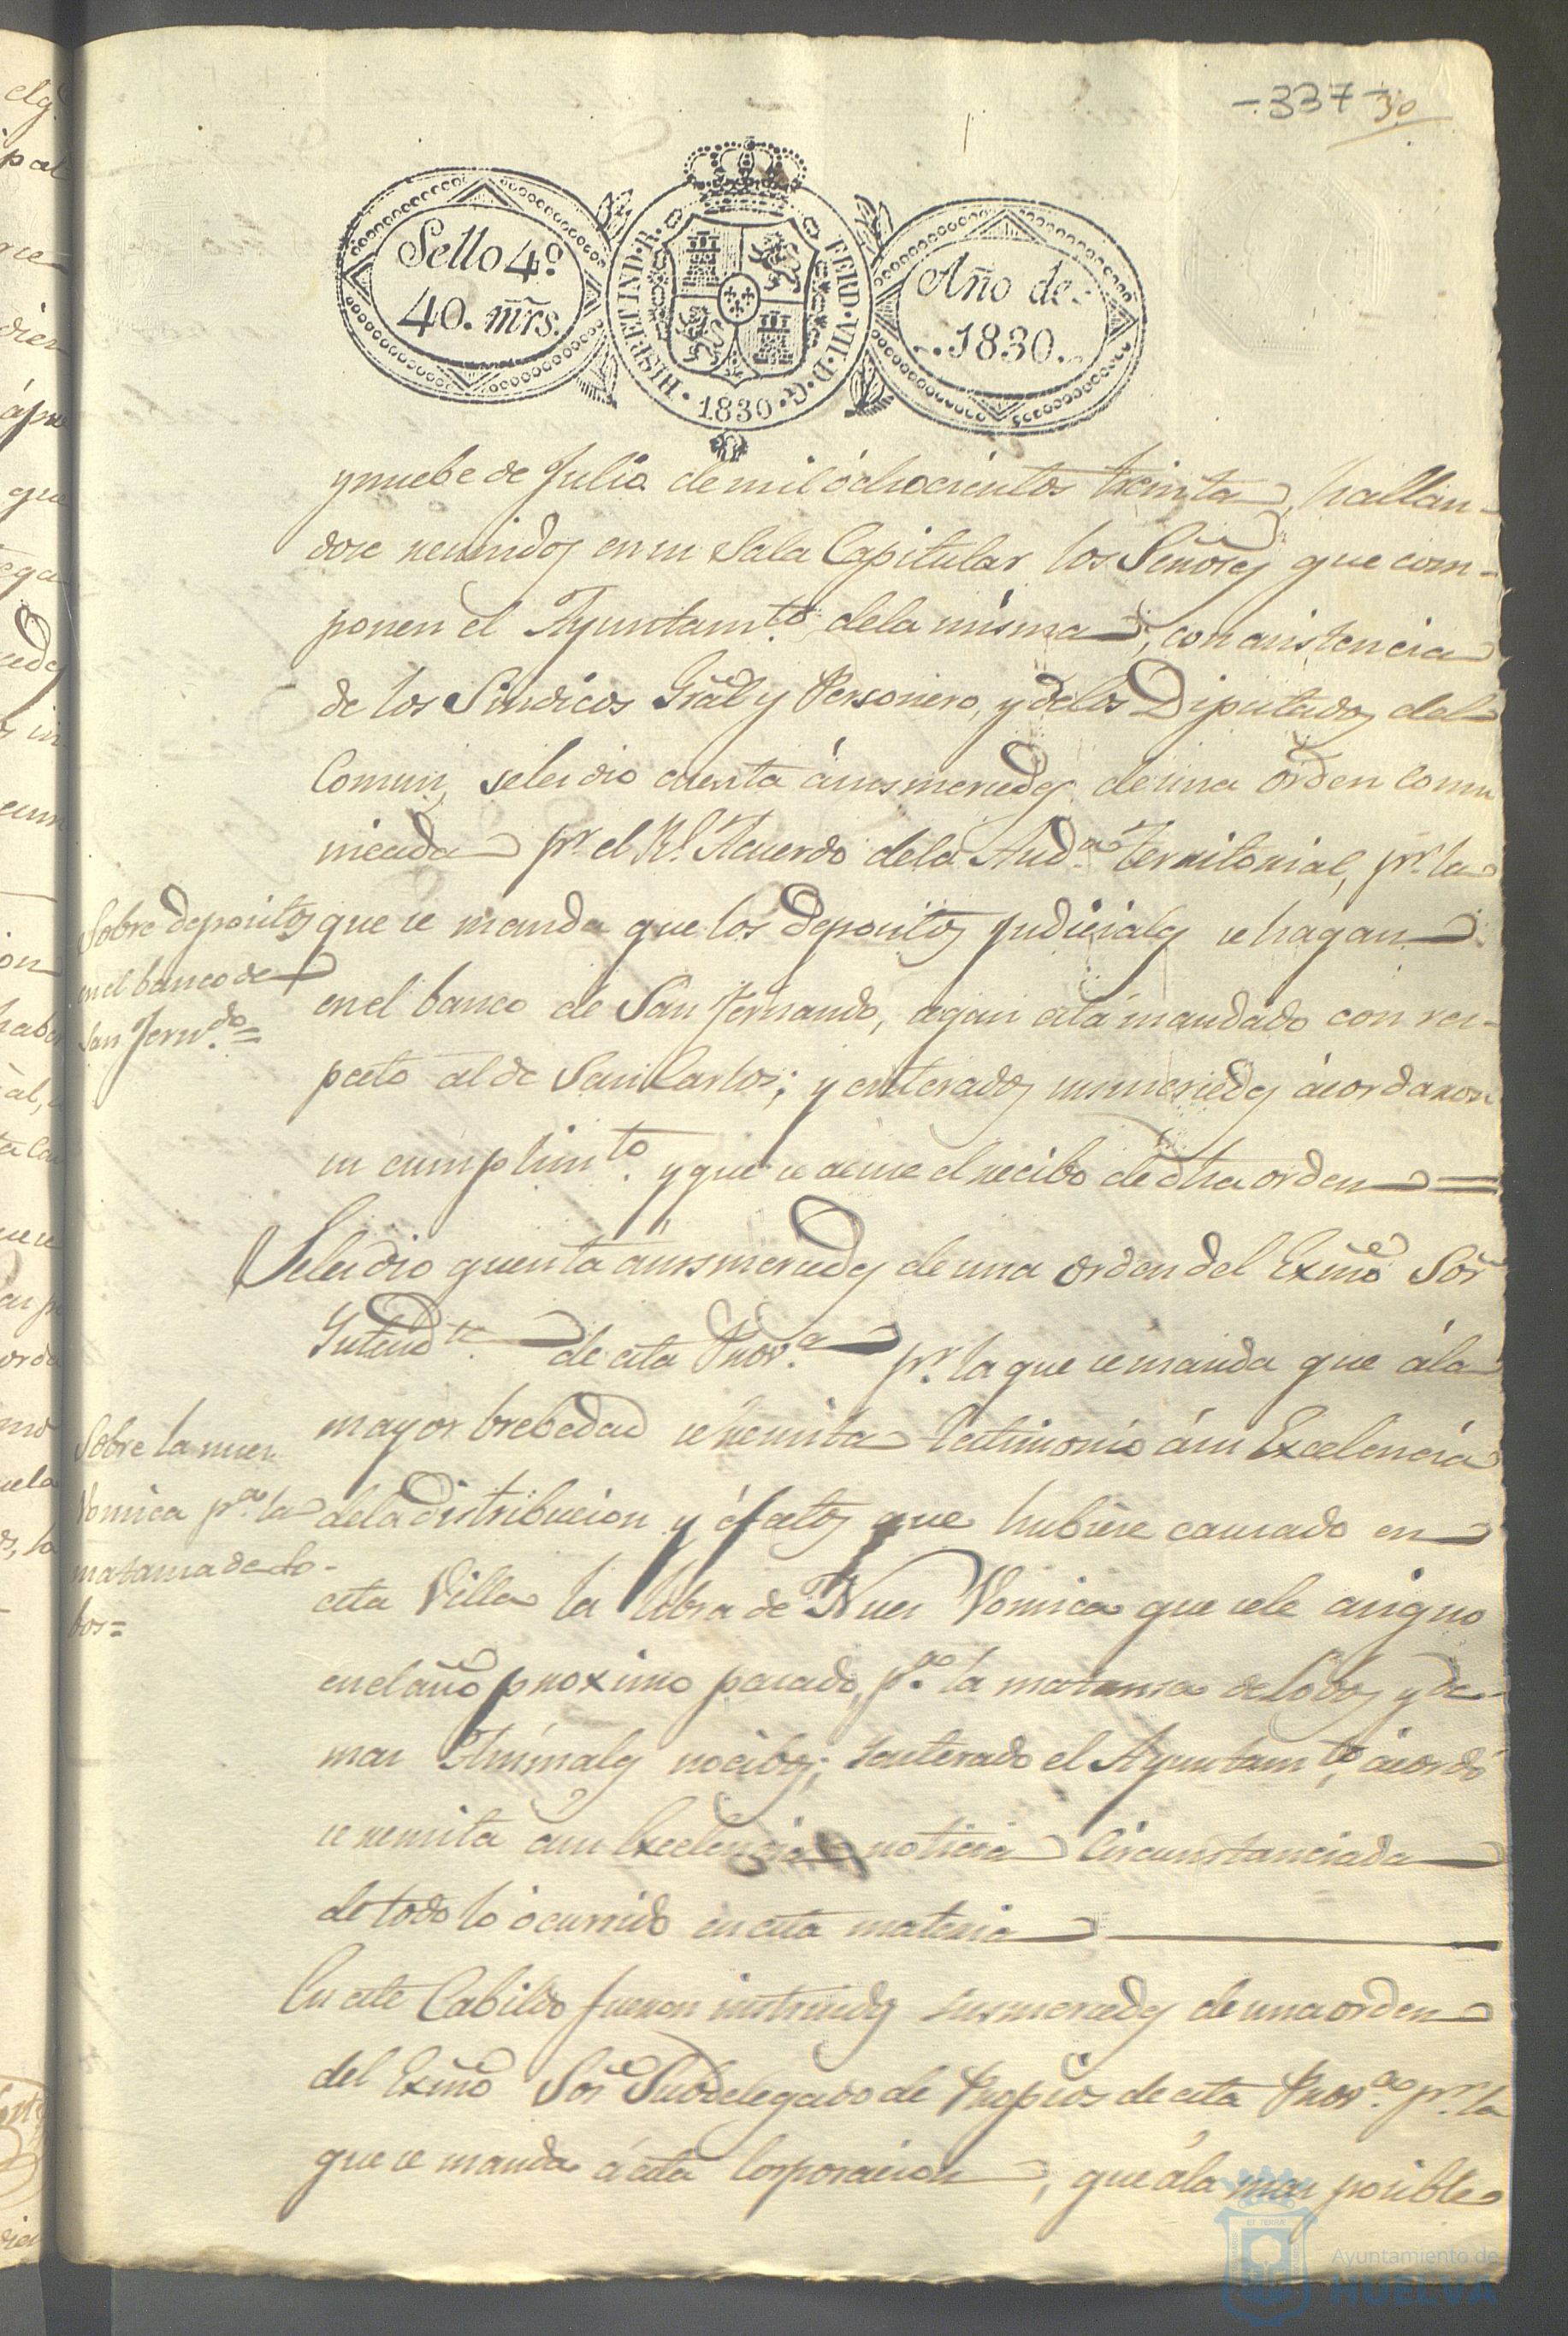 -337- 30
Sello 4º
40. mrs.
HISP. ET IND. R.
FERD. VII. D. G.
1830
Año de
1830.
y nuebe de Julio de mil ochocientos treinta, hallan-
dose reunidos en su Sala Capitular los Señores que com-
ponen el Ayuntamto. dela misma, con asistencia
de los Sindicos Gral y Personero, y delos Diputados del
Comun, seles dio cuenta á sus mercedes de una orden comu
nicada pr. el Rl. Acuerdo dela Auda. territorial, pr. la
Sobre depositos
en el banco de
San Ferndo. =
que se manda que los depositos judiciales se hagan
en el banco de San Fernando, segun está mandado con res-
pecto al de San Carlos; y enterados sus mercedes ácordaron
su cumplimto. y que se acuse el recibo de dha orden =
Seles dio quenta á sus mercedes de una orden del Exmo Sor
Intendte. de esta Prova. pr. la que se manda que á la
Sobre la nuez
Vomica pa. la
matansa de Lo-
bos =
mayor brebedad se remita testimonio á su Excelencia
dela distribucion y éfectos que hubiese causado en
esta Villa la libra de Nuez Vomica que sele asigno
en el año proximo pasado, pa. la matansa de Lobos y de-
mas Animales nocibos; y enterado el Ayuntamto. ácordó
se remita á su Excelencia noticia circunstanciada
de todo lo ocurrido en esta materia
En este Cabildo fueron instruidos sus mercedes de una orden
del Exmo Sor Subdelegado de Propios de esta Prova. pr. la
que se manda á esta Corporacion, que á la mas posible
Ayuntamiento de
HUELVA